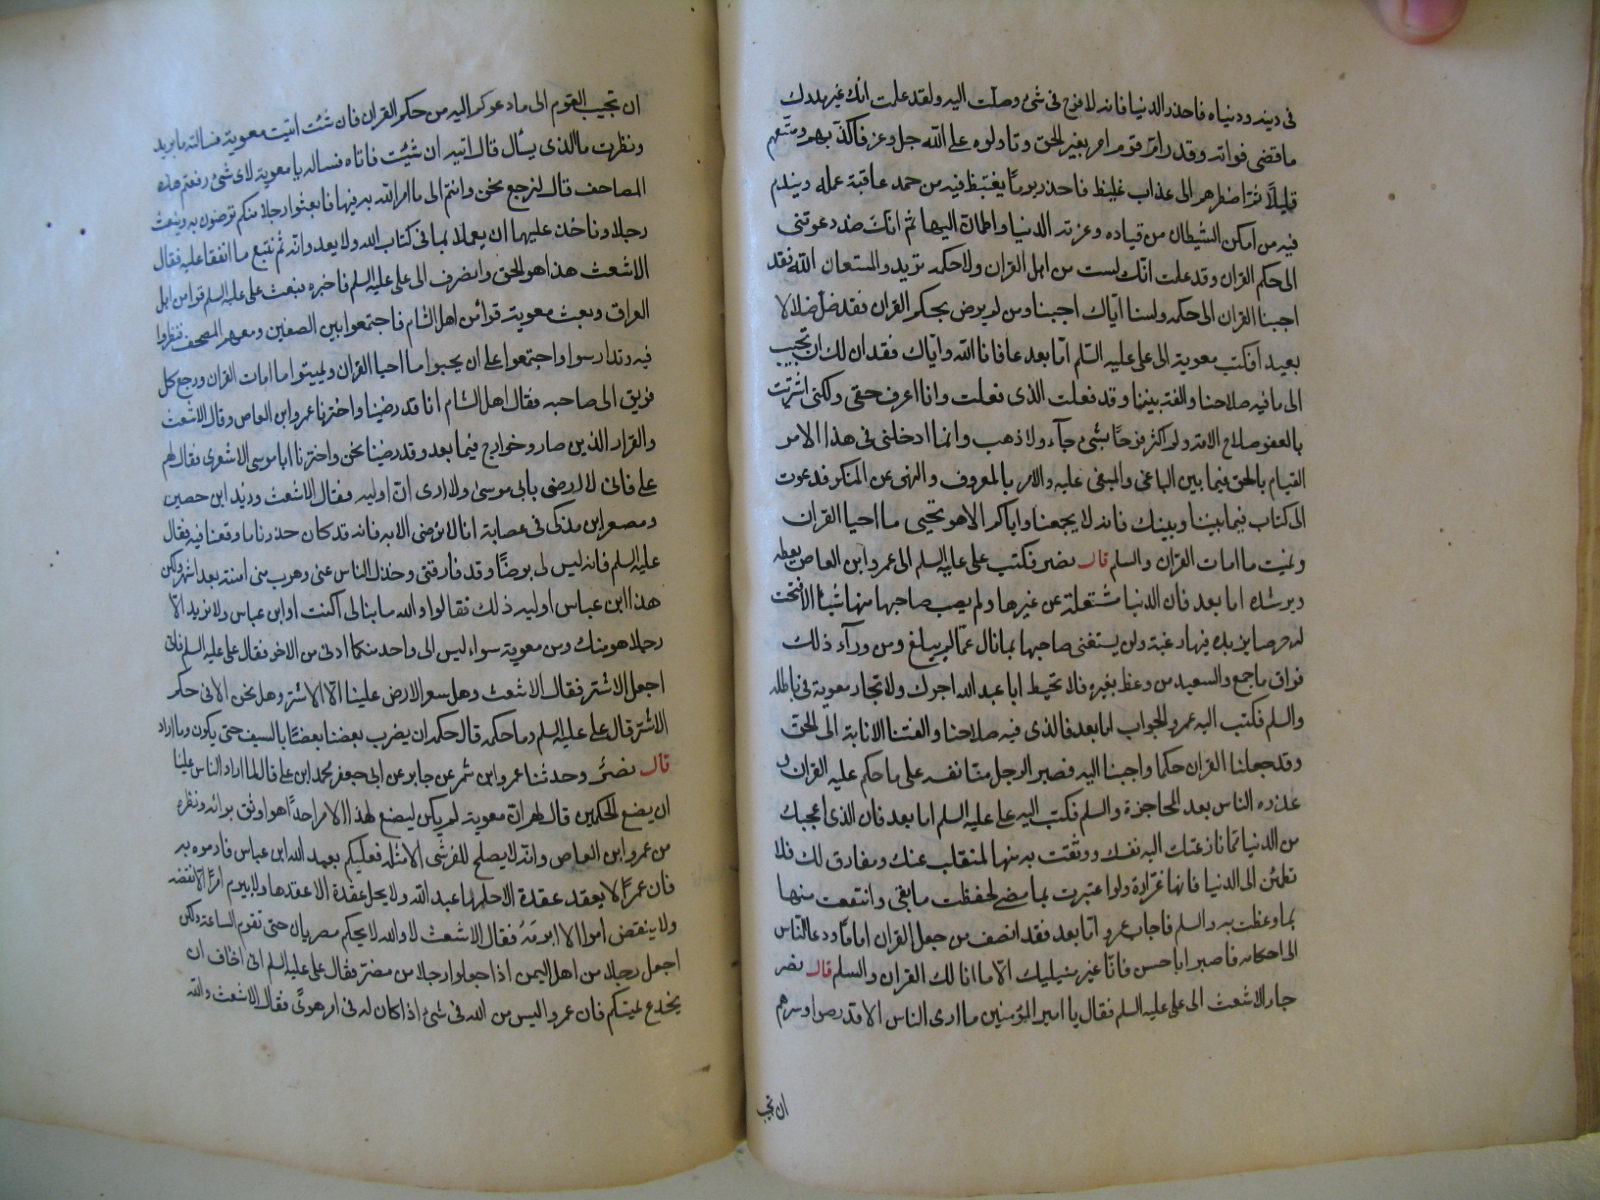 في دينه ودنياه فاحذر الدنيا فانه لا فرح في شئ وصلت اليه ولقد علمت انك غير مدرك
ما قضى فواته وقد رام قوم امرا بغير الحق وتاولوه على الله جل وعز فاكذبهم ومتعهم
قليلا ثم اضطرهم الى عذاب غليظ فاحذر يوما يغتبط فيه من حمد عاقبة عمله ويندم
فيه من امكن الشيطان من قياده وغرته الدنيا واطمان اليها ثم انك قد دعوتني
الى حكم القران وقد علمت انك لست من اهل القران ولا حكمه تريد والمستعان الله فقد
اجبنا القران الى حكمه ولسنا اياك اجبنا ومن لم يرض بحكم القران فقد ضل ضلالا
بعيدا فكتب معوية الى على عليه السلم اما بعد عافانا الله واياك فقد ان لك ان تجيب
الى ما فيه صلاحنا والفة بيننا وقد فعلت الذي فعلت وانا اعرف حقي ولكني اشتريت
بالعفو صلاح الامة ولم اكثر فرحا بشئ جاء ولا ذهب وانما ادخلني في هذا الامر
القيام بالحق فيما بين الباغي والمبغى عليه والامر بالمعروف والنهى عن المنكر فدعوت
الى كتاب فيما بيننا وبينك فانه لا يجمعنا واياكم الا هو نحيى ما احيا القران
ونميت ما امات القران والسلم قال نصر فكتب على عليه السلم الى عمرو ابن العاص يعظه
ويرشده اما بعد فان الدنيا مشتغلة عن غيرها ولم يصب صاحبها منها شيا الا فتحت
له حرصا يزيده فيها رغبة ولن يستغنى صاحبها بما نال عما لم يبلغ ومن وراء ذلك
فراق ما جمع والسعيد من وعظ بغيره فلا تحبط ابا عبد الله اجرك ولا تجار معوية في باطله
والسلم فكتب اليه عمرو الجواب اما بعد فالذي فيه صلاحنا والفتنا الانابة الى الحق
وقد جعلنا القران حكما واجبنا اليه فصبر الرجل منا نفسه على ما حكم عليه القران و
عذره الناس بعد المحاجزة والسلم فكتب اليه على عليه السلم اما بعد فان الذي اعجبك
من الدنيا مما نازعتك اليه نفسك ووثقت به منها لمنقلب عنك ومفارق لك فلا
تطمئن الى الدنيا فانها غرارة ولو اعتبرت بما مضى لحفظت ما بقى وانتفعت منها
بما وعظت به والسلم فاجاب عمرو اما بعد فقد انصف من جعل القران اماما ودعا الناس
الى احكامه فاصبر ابا حسن فانا غير منيليك الا ما انالك القران والسلم قال نصر
جاء الاشعث الى على عليه السلم فقال يا امير المؤمنين ما ارى الناس الا قد رضوا وسرهم
ان تجيب
ان تجيب القوم الى ما دعوكم اليه من حكم القران فان شئت اتيت معوية فسالته ما يريد
ونظرت ما الذي يسأل قال اتيه ان شئت فاتاه فساله يا معوية لاى شئ رفعتم هذه
المصاحف قال لنرجع نحن وانتم الى ما امر الله به فيها فابعثوا رجلا منكم ترضون به ونبعث
رجلا وناخذ عليهما ان يعملا بما في كتاب الله ولا يعدوانه ثم نتبع ما اتفقا عليه فقال
الاشعث هذا هو الحق وانصرف الى على عليه السلم فاخبره فبعث على عليه السلم قرا من اهل
العراق وبعث معوية قرا من اهل الشام فاجتمعوا بين الصفين ومعهم المصحف فنظروا
فيه وتدارسوا واجتمعوا على ان يحيوا ما احيا القران ويميتوا ما امات القران ورجع كل
فريق الى صاحبه فقال اهل الشام انا قد رضينا واخترنا عمرو ابن العاص وقال الاشعث
والقراء الذين صاروا خوارج فيما بعد وقد رضينا نحن واخترنا ابا موسى الاشعرى فقال لهم
على فاني لا ارضى بابى موسى ولا ارى ان اوليه فقال الاشعث وزيد ابن حصين
ومسعر ابن فدكى في عصابة انا لا نرضى الا به فانه قد كان حذرنا ما وقعنا فيه فقال
عليه السلم فانه ليس لى برضا وقد فارقنى وخذل الناس عنى وهرب منى امنته بعد اشهر ولكن
هذا ابن عباس اوليه ذلك فقالوا والله ما نبالى اكنت او ابن عباس ولا نريد الا
رجلا هو منك ومن معوية سواء ليس الى واحد منكما ادنى من الاخر فقال على عليه السلم فانى
اجعل الاشتر فقال الاشعث وهل سعر الارض علينا الا الاشتر وهل نحن الا في حكم
الاشتر قال على عليه السلم وما حكمه قال حكمه ان يضرب بعضنا بعضا بالسيف حتى يكون وما اراد
قال نصر وحدثنا عمرو ابن شمر عن جابر عن ابى جعفر محمد ابن على قال لما اراد الناس عليا
ان يضع الحكمين قال لهم ان معوية لم يكن ليضع لهذا الامر احدا هو اوثق برائه ونظره
من عمرو ابن العاص وانه لا يصلح للقرشى الا مثله فعليكم بعبد الله ابن عباس فارموه به
فان عمرا لا يعقد عقدة الا حلها عبد الله ولا يحل عقدة الا عقدها ولا يبرم امرا الا نقضه
ولا ينقض امرا الا ابرمه فقال الاشعث لا والله لا يحكم مضريان حتى تقوم الساعة ولكن
اجعل رجلا من اهل اليمن اذا جعلوا رجلا من مضر فقال على عليه السلم انى اخاف ان
يخدع يمنيكم فان عمروا ليس من الله في شئ اذا كان له في امر هوى فقال الاشعث والله